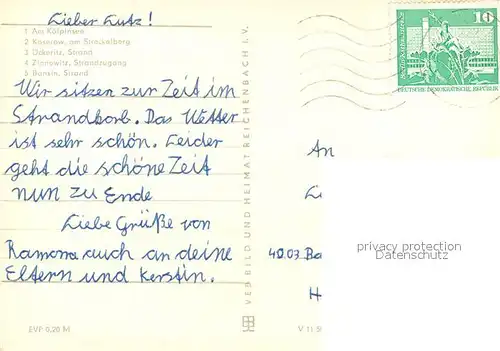 Lieber Lutz!
1 Am Kölpinsee
2 Koserow, am Streckelberg
3 Ückeritz, Strand
4 Zinnowitz, Strandzugang
5 Bansin, Strand
Wir sitzen zur Zeit im
Strandkorb. Das Wetter
ist sehr schön. Leider
geht die schöne Zeit
nun zu Ende
Liebe Grüße von
Ramona auch an deine
Eltern und Kerstin.
EVP 0,20 M
VEB BILD UND HEIMAT REICHENBACH I. V.
10
DEUTSCHE DEMOKRATISCHE REPUBLIK
An
Li
4003 Ba
H
V 11 5
privacy protection
Datenschutz